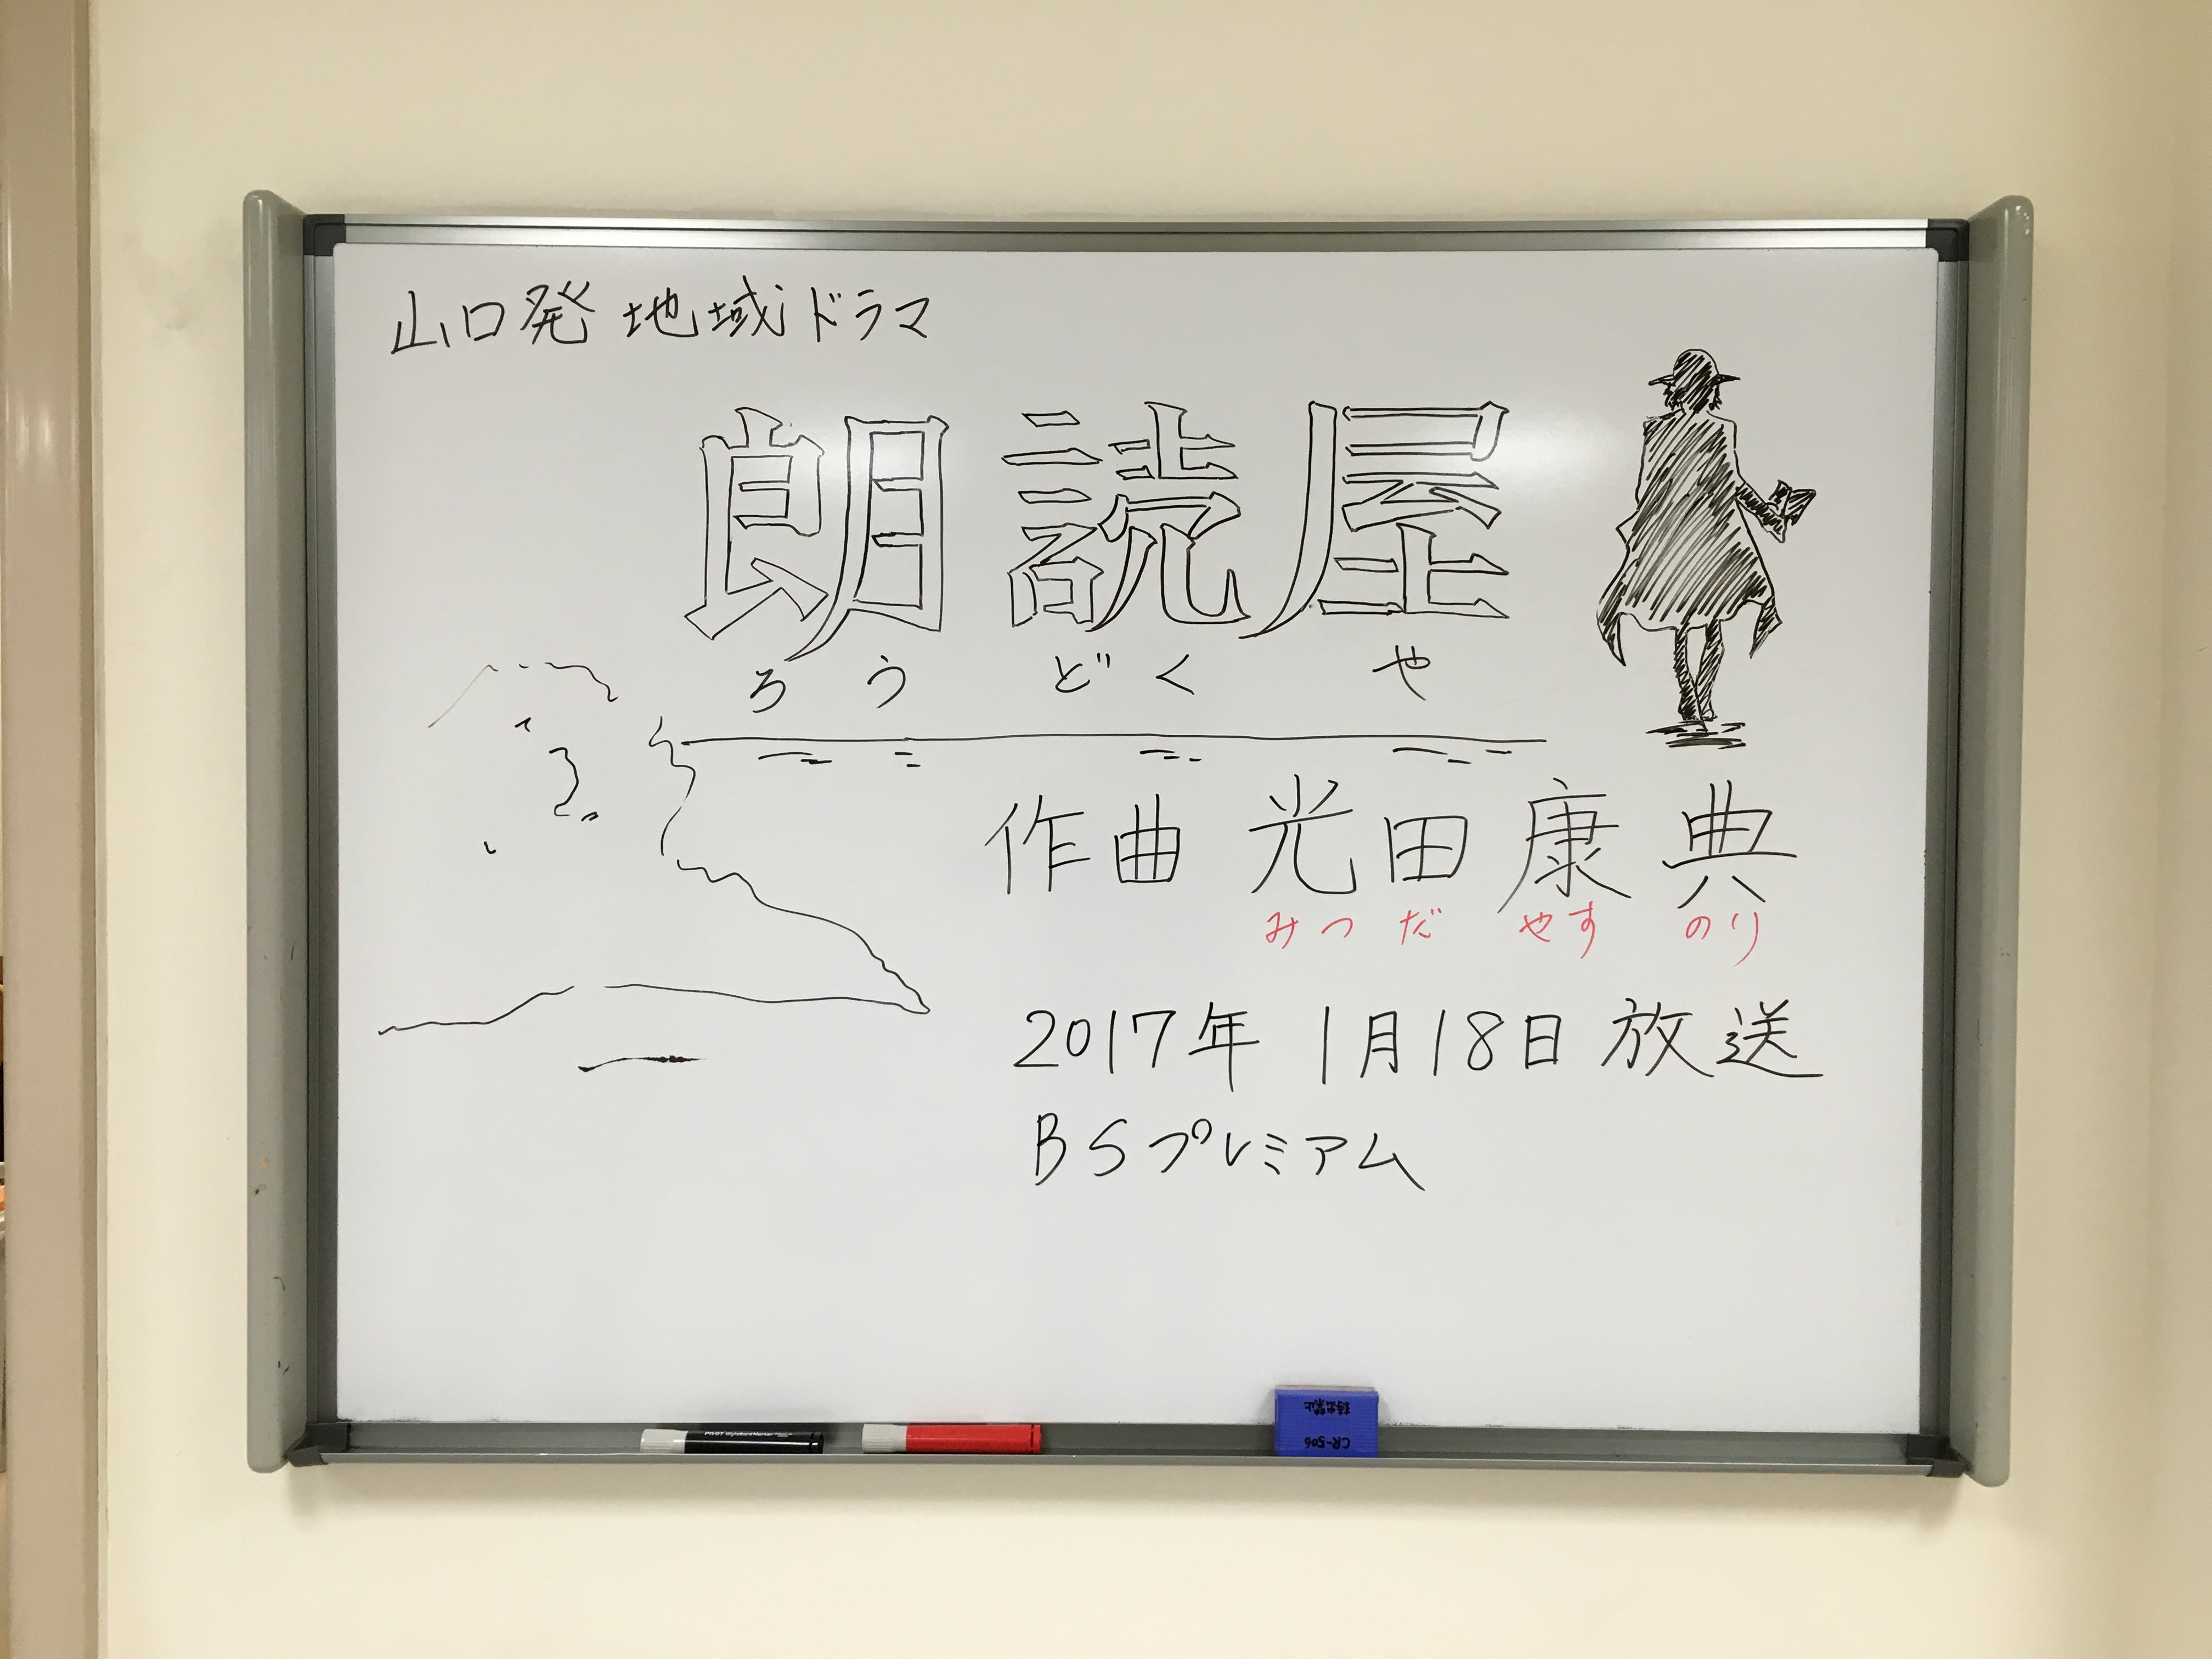 山口発 地域ドラマ
朗読屋
ろうどくや
作曲 光田康典
みつだ やすのり
2017年 1月18日 放送
BSプレミアム
PILOT
持出禁止
CR-506